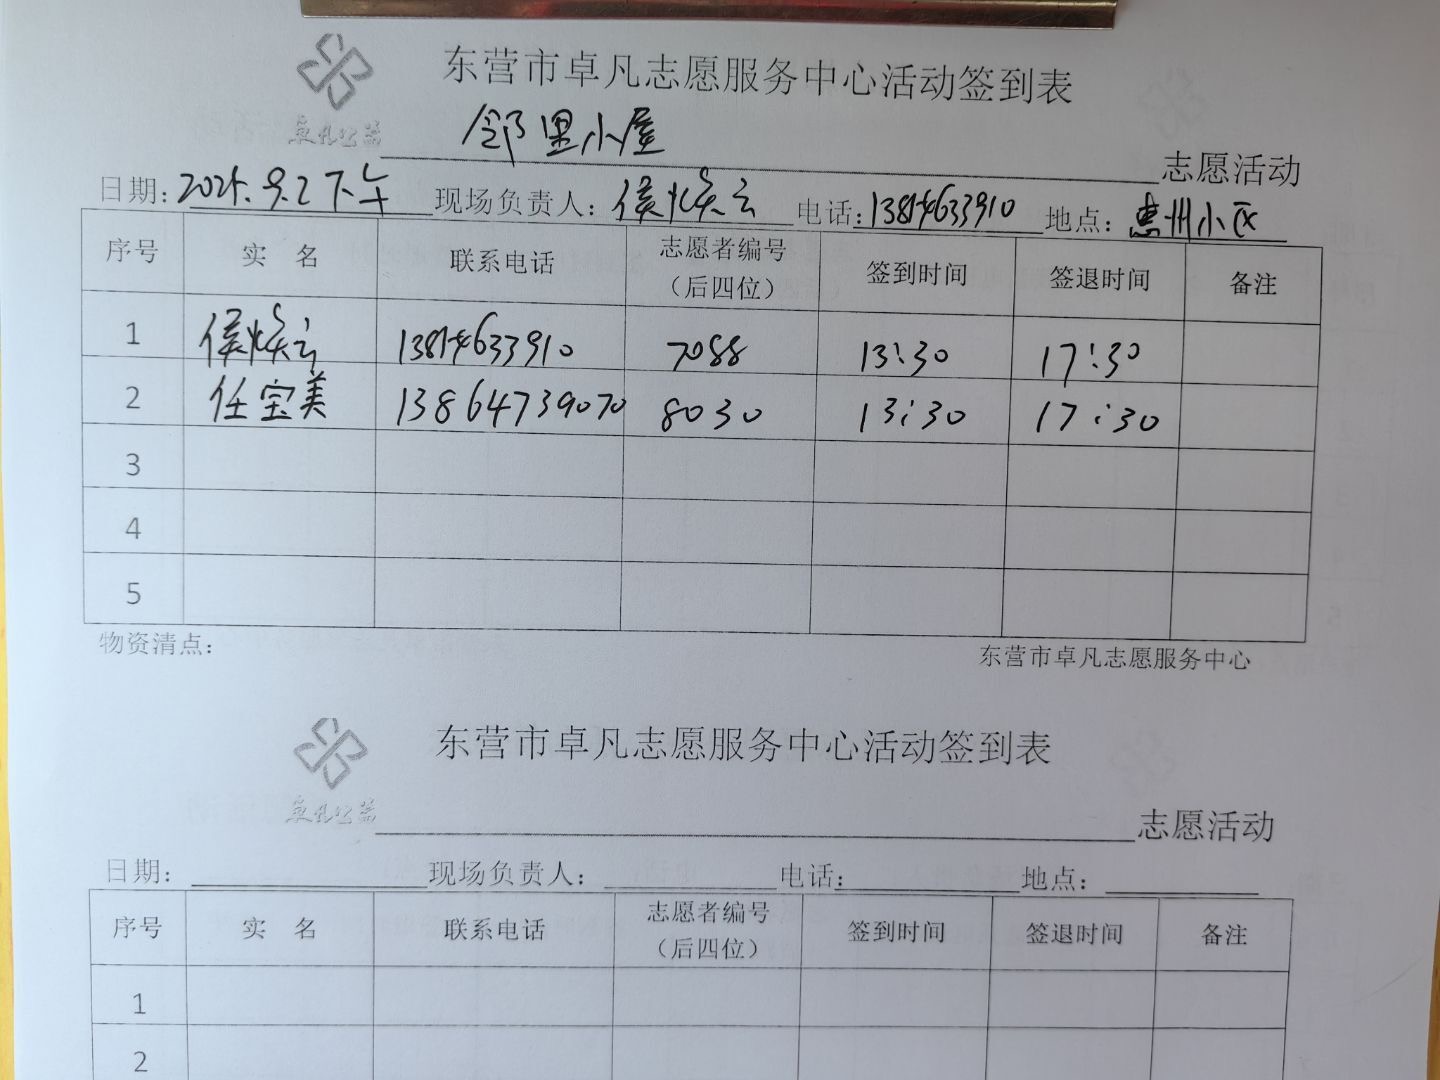 东营市卓凡志愿服务中心活动签到表
卓凡公益
邻里小屋 志愿活动
日期: 2025.9.2下午 现场负责人: 侯焕云 电话: 13814633910 地点: 惠州小区
序号 实 名 联系电话 志愿者编号(后四位) 签到时间 签退时间 备注
1 侯焕云 13814633910 7088 13:30 17:30
2 任宝美 13864739070 8030 13:30 17:30
3
4
5
物资清点: 东营市卓凡志愿服务中心
东营市卓凡志愿服务中心活动签到表
卓凡公益
志愿活动
日期: 现场负责人: 电话: 地点:
序号 实 名 联系电话 志愿者编号(后四位) 签到时间 签退时间 备注
1
2